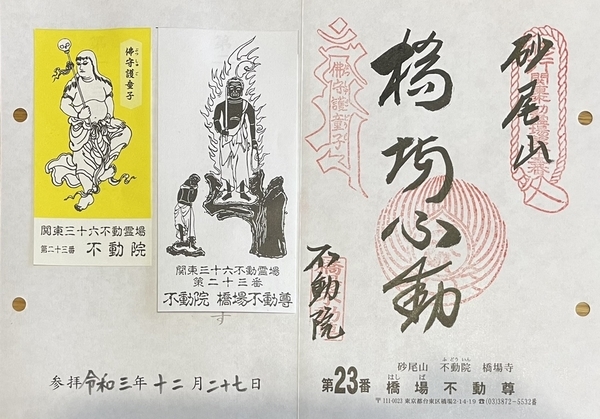 佛守護童子
ぶっしゅごどうじ
関東三十六不動霊場
第二十三番 不動院
関東三十六不動霊場
第二十三番
不動院 橋場不動尊
参拝令和三年十二月二十七日
砂尾山
橋場不動
不動院
佛守護童子
砂尾山 不動院 橋場寺
ふどういん
第23番 橋場不動尊
はしば
〒111-0023 東京都台東区橋場2-14-19 ☎(03)3872-5532